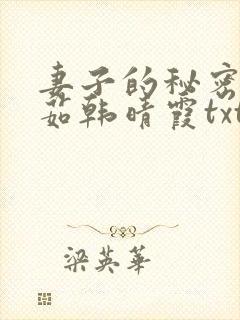 妻子的秘密
茹韩晴霞txt
梁英华